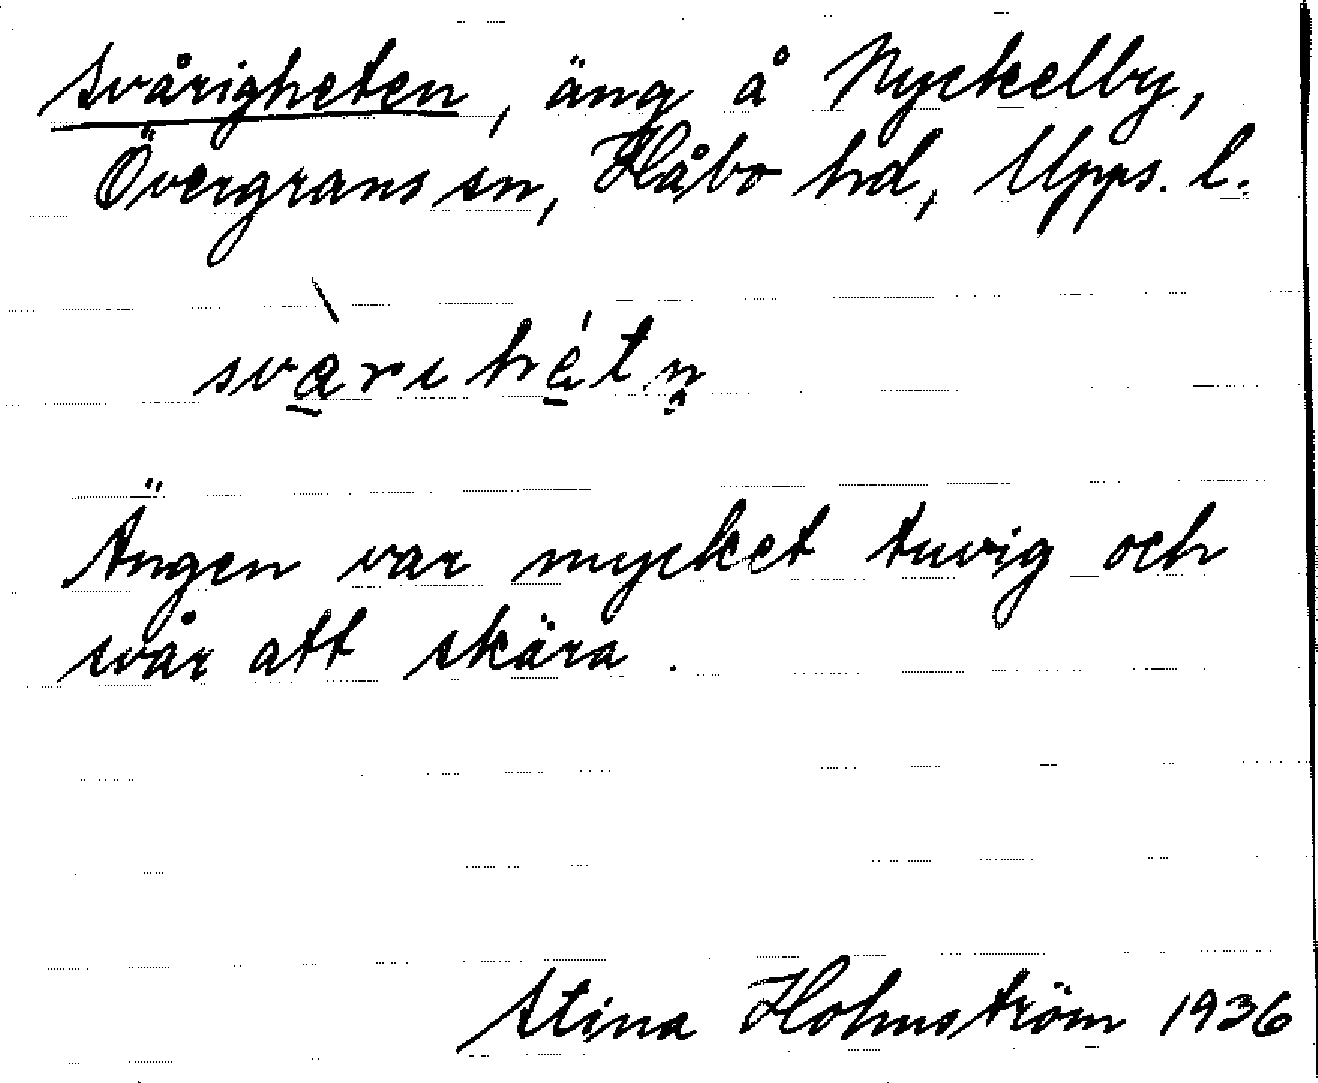 Svårigheten, äng å Nyckelby,
Övergrans sn, Håbo hd, Upps. l.
Ängen var mycket tuvig och
svår att skära.
Stina Holmström 1936